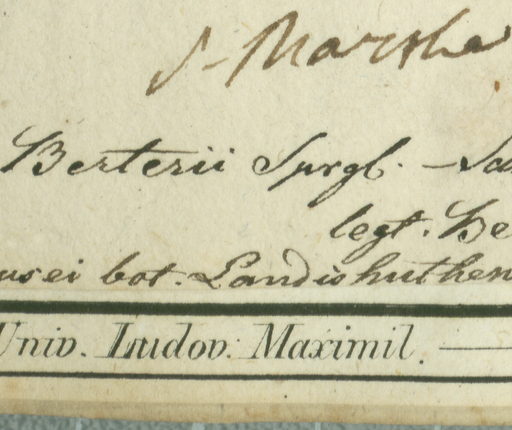 J. Marsha
Berterii Sprgl. — Sa
legt. Be
usei bot. Landishuthen
Univ. Ludov. Maximil. —